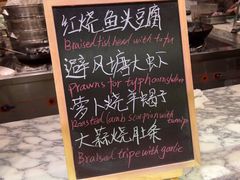 红烧鱼头豆腐
Braised fish head with tofu
避风塘大虾
Prawns for typhoon shelter
萝卜烧羊蝎子
Roasted lamb scorpion with turnip
大蒜烧肚条
Braised tripe with garlic